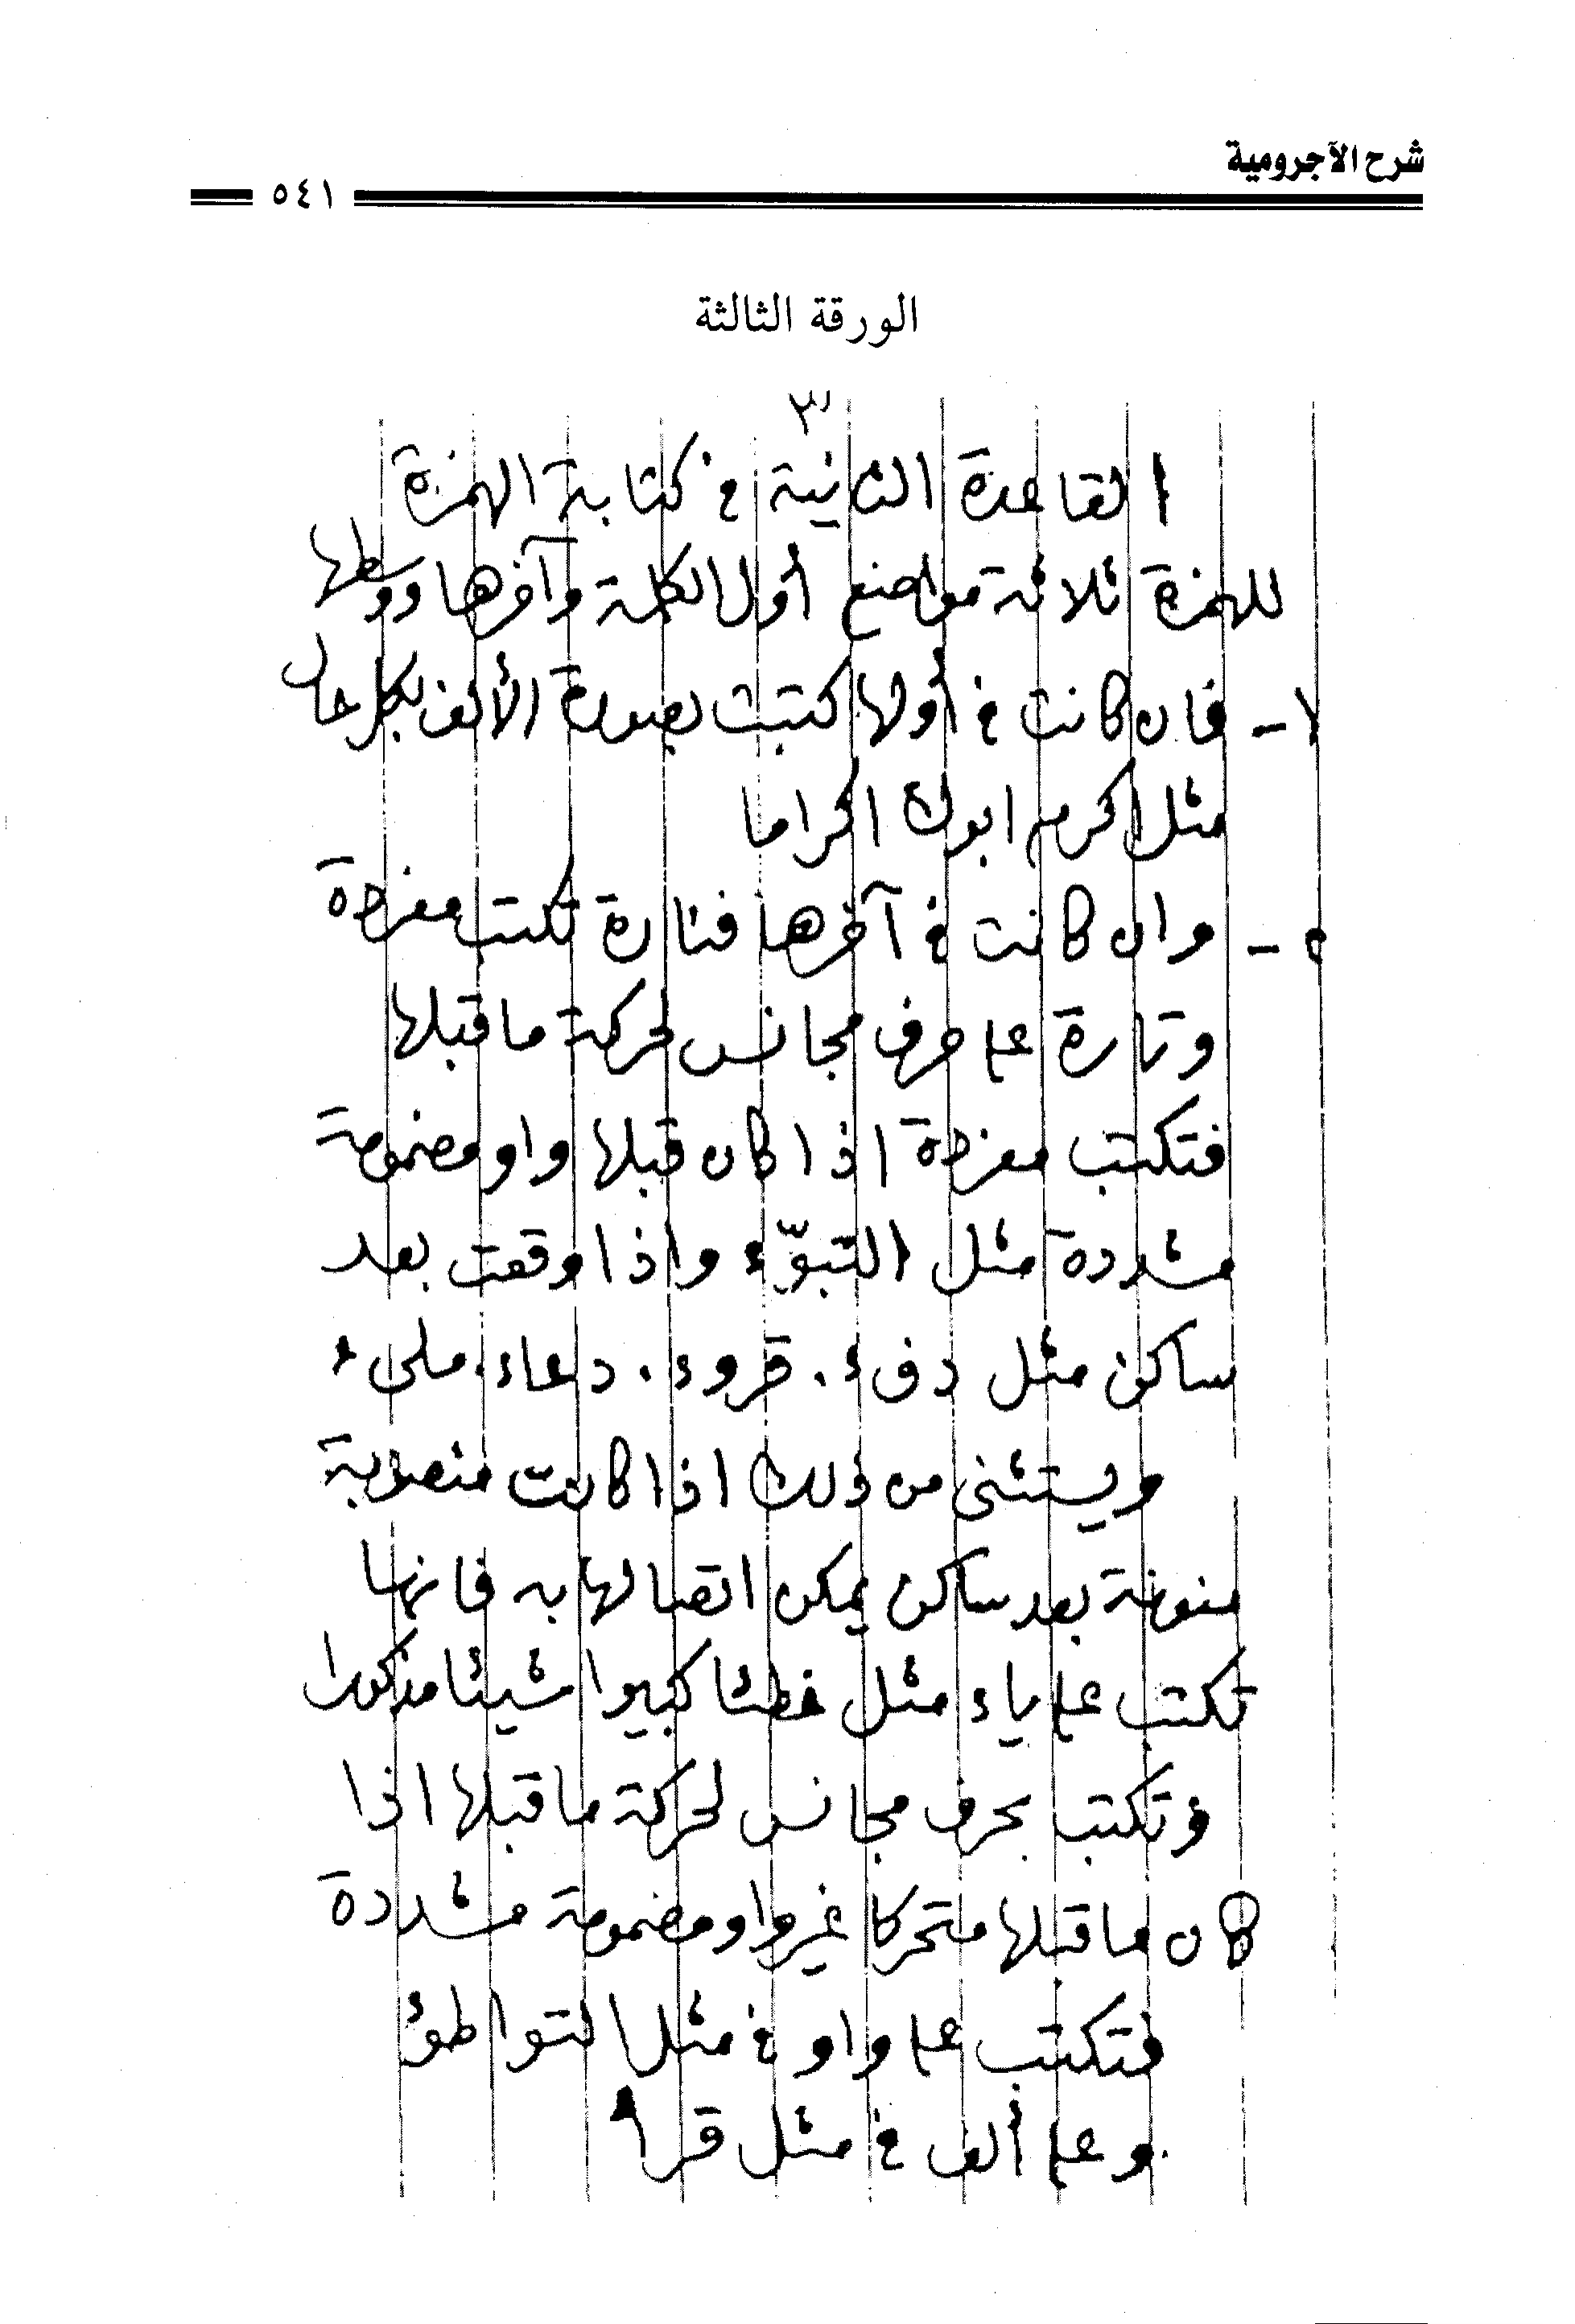 شرح الآجرومية
٥٤١
الورقة الثالثة
٣
القاعدة الثانية في كتابة الهمزة
للهمزة ثلاثة مواضع أول الكلمة وآخرها ووسطها
١- فان كانت في أولها كتبت بصورة الألف بكل حال
مثل اكرم ابوك اكراما
٢- وان كانت في آخرها فتارة تكتب مفردة
وتارة على حرف مجانس لحركة ما قبلها
فتكتب مفردة اذا كان قبلها واو مضمومة
مشددة مثل التبوّء واذا وقعت بعد
ساكن مثل دفء. قروء. دعاء. ملىء
ويستثنى من ذلك اذا كانت منصوبة
منونة بعد ساكن يمكن اتصالها به فانها
تكتب على ياء مثل خطئا كبيرا شيئا مذكورا
وتكتب بحرف مجانس لحركة ما قبلها اذا
كان ما قبلها متحركا غير واو مضمومة مشددة
فتكتب على واو في مثل التواطؤ
وعلى ألف في مثل قرأ